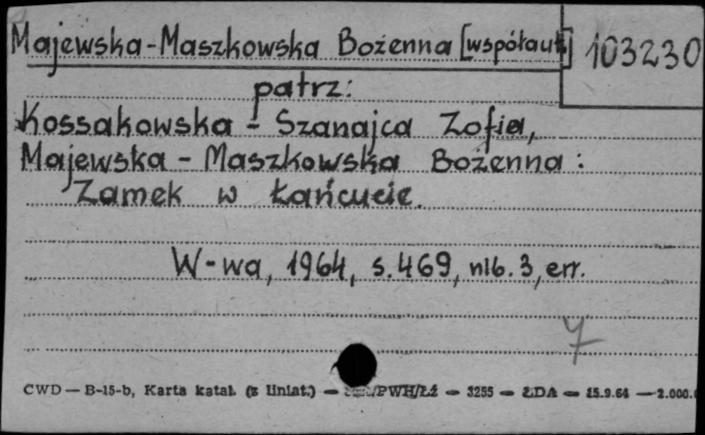 Majewska-Maszkowska Bożenna [współaut] 103230
patrz:
Kossakowska - Szanajca Zofia,
Majewska - Maszkowska Bożenna:
Zamek w Łańcucie.
W-wa, 1964, s.469, nlb. 3, err.
7
CWD — B-15-b, Karta katal. (z liniat.) — /PWH/Łż — 3255 — ŁDA — 15.9.64 — 2.000.